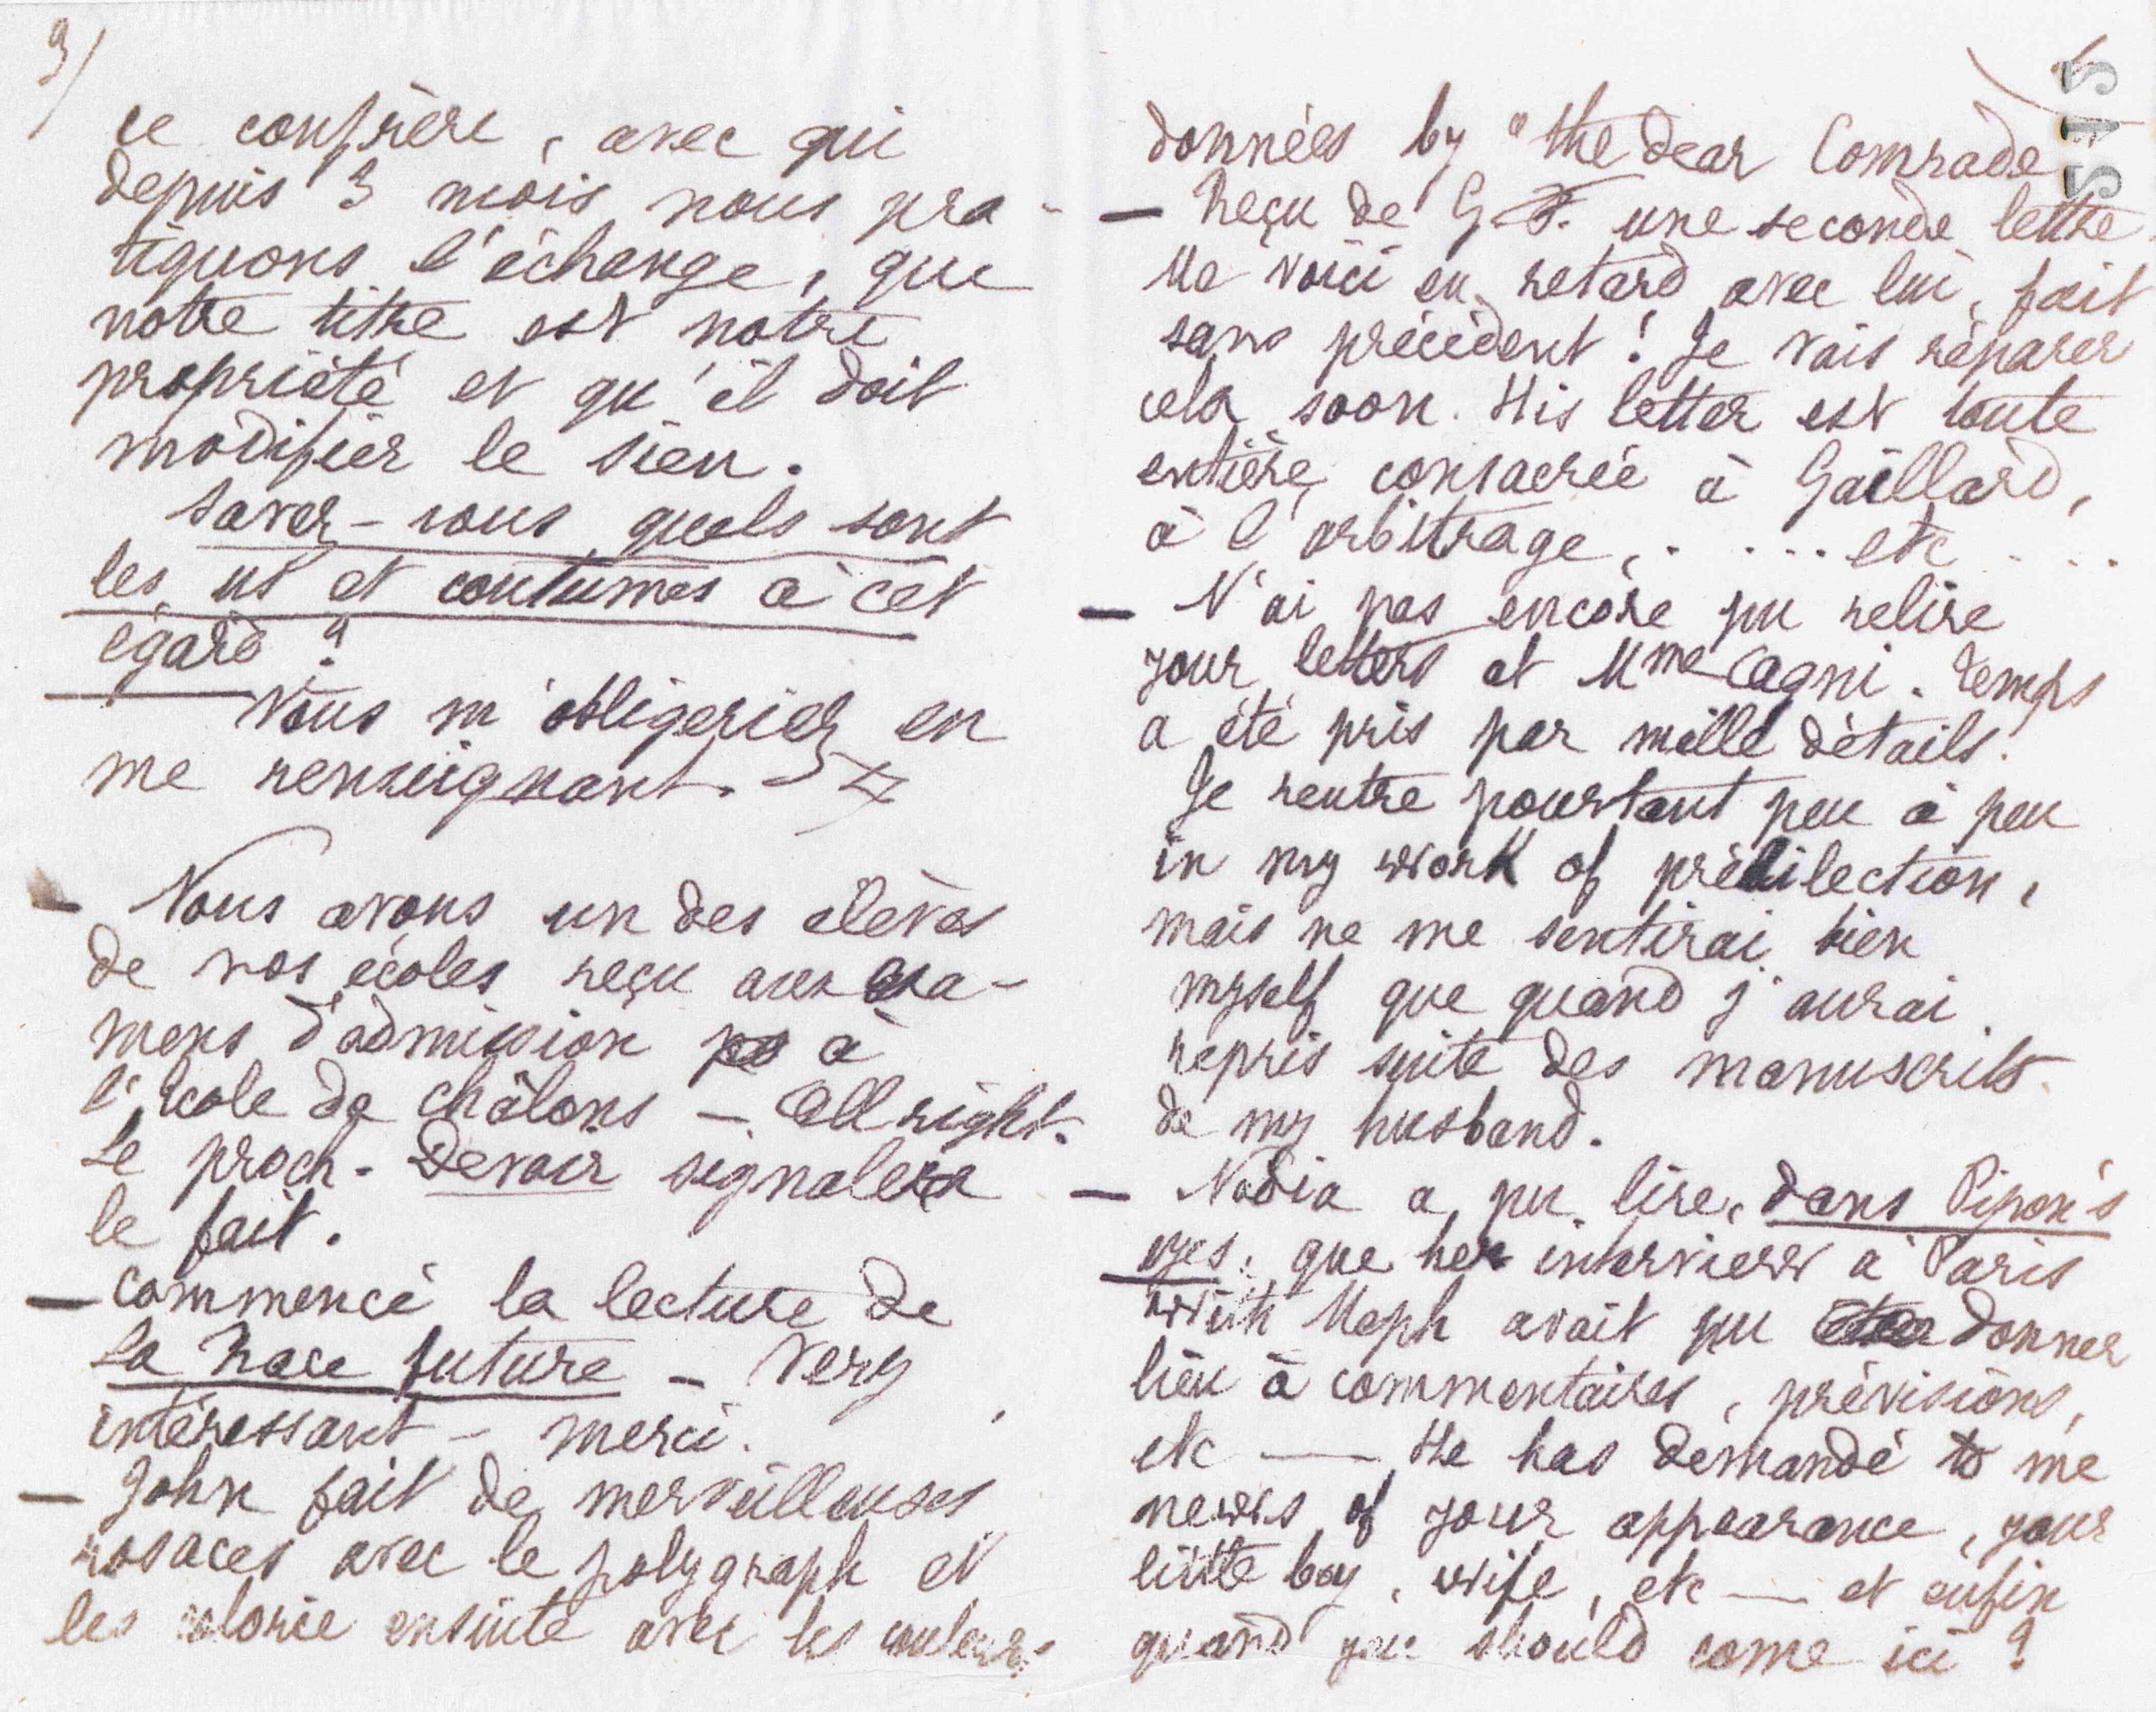 3/
ce confrère, avec qui
depuis 3 mois nous pra-
tiquons l'échange, que
notre titre est notre
propriété et qu'il doit
modifier le sien.
Savez-vous quels sont
les us et coutumes à cet
égard ?
Vous m'obligeriez en
me renseignant.
— Nous avons un des élèves
de nos écoles reçu aux exa-
mens d'admission à
l'école de Châlons — All right.
Le proch. Devoir signalera
le fait.
— Commencé la lecture de
La Race future — Very
intéressant — merci.
— John fait de merveilleuses
rosaces avec le polygraph et
les colorie ensuite avec les couleurs
5115
données by "the dear Comrade
— Reçu de G. une seconde lettre
Me voici en retard avec lui, fait
sans précédent ! Je vais réparer
cela soon. His letter est toute
entière consacrée à Gaillard,
à l'arbitrage, . . . . . etc . . .
— N'ai pas encore pu relire
your letters et Mme Cagni. Temps
a été pris par mille détails.
Je rentre pourtant peu à peu
in my work of prédilection,
mais ne me sentirai bien
myself que quand j'aurai
repris suite des manuscrits
de my husband.
— Nadia a pu lire, dans Pipon's
eyes, que her interview à Paris
with Meph avait pu donner
lieu à commentaires, prévisions,
etc — He has demandé to me
news of your appearance, your
little boy, wife, etc — et enfin
quand you should come ici ?